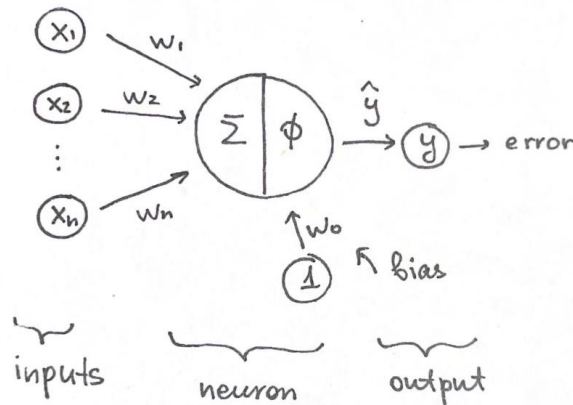 x₁
w₁
x₂
w₂
⋮
xₙ
wₙ
Σ ϕ
ŷ
y → error
w₀
1
bias
inputs
neuron
output